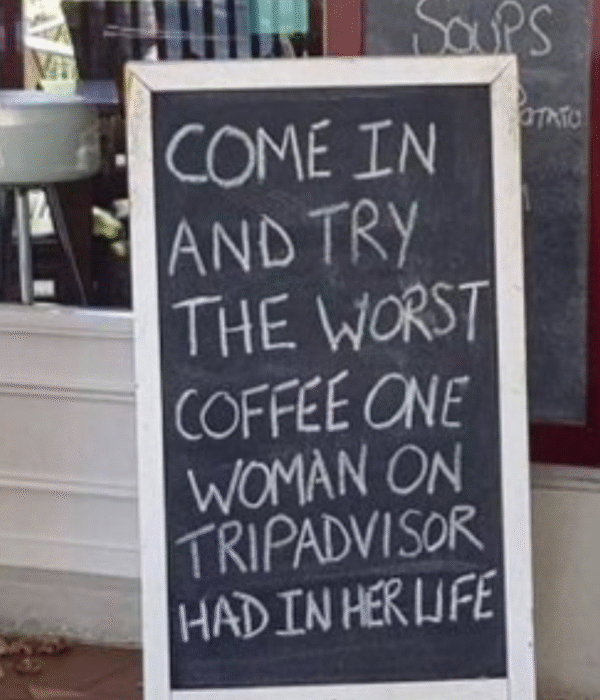 SOUPS
POTATO
COME IN
AND TRY
THE WORST
COFFEE ONE
WOMAN ON
TRIPADVISOR
HAD IN HER LIFE